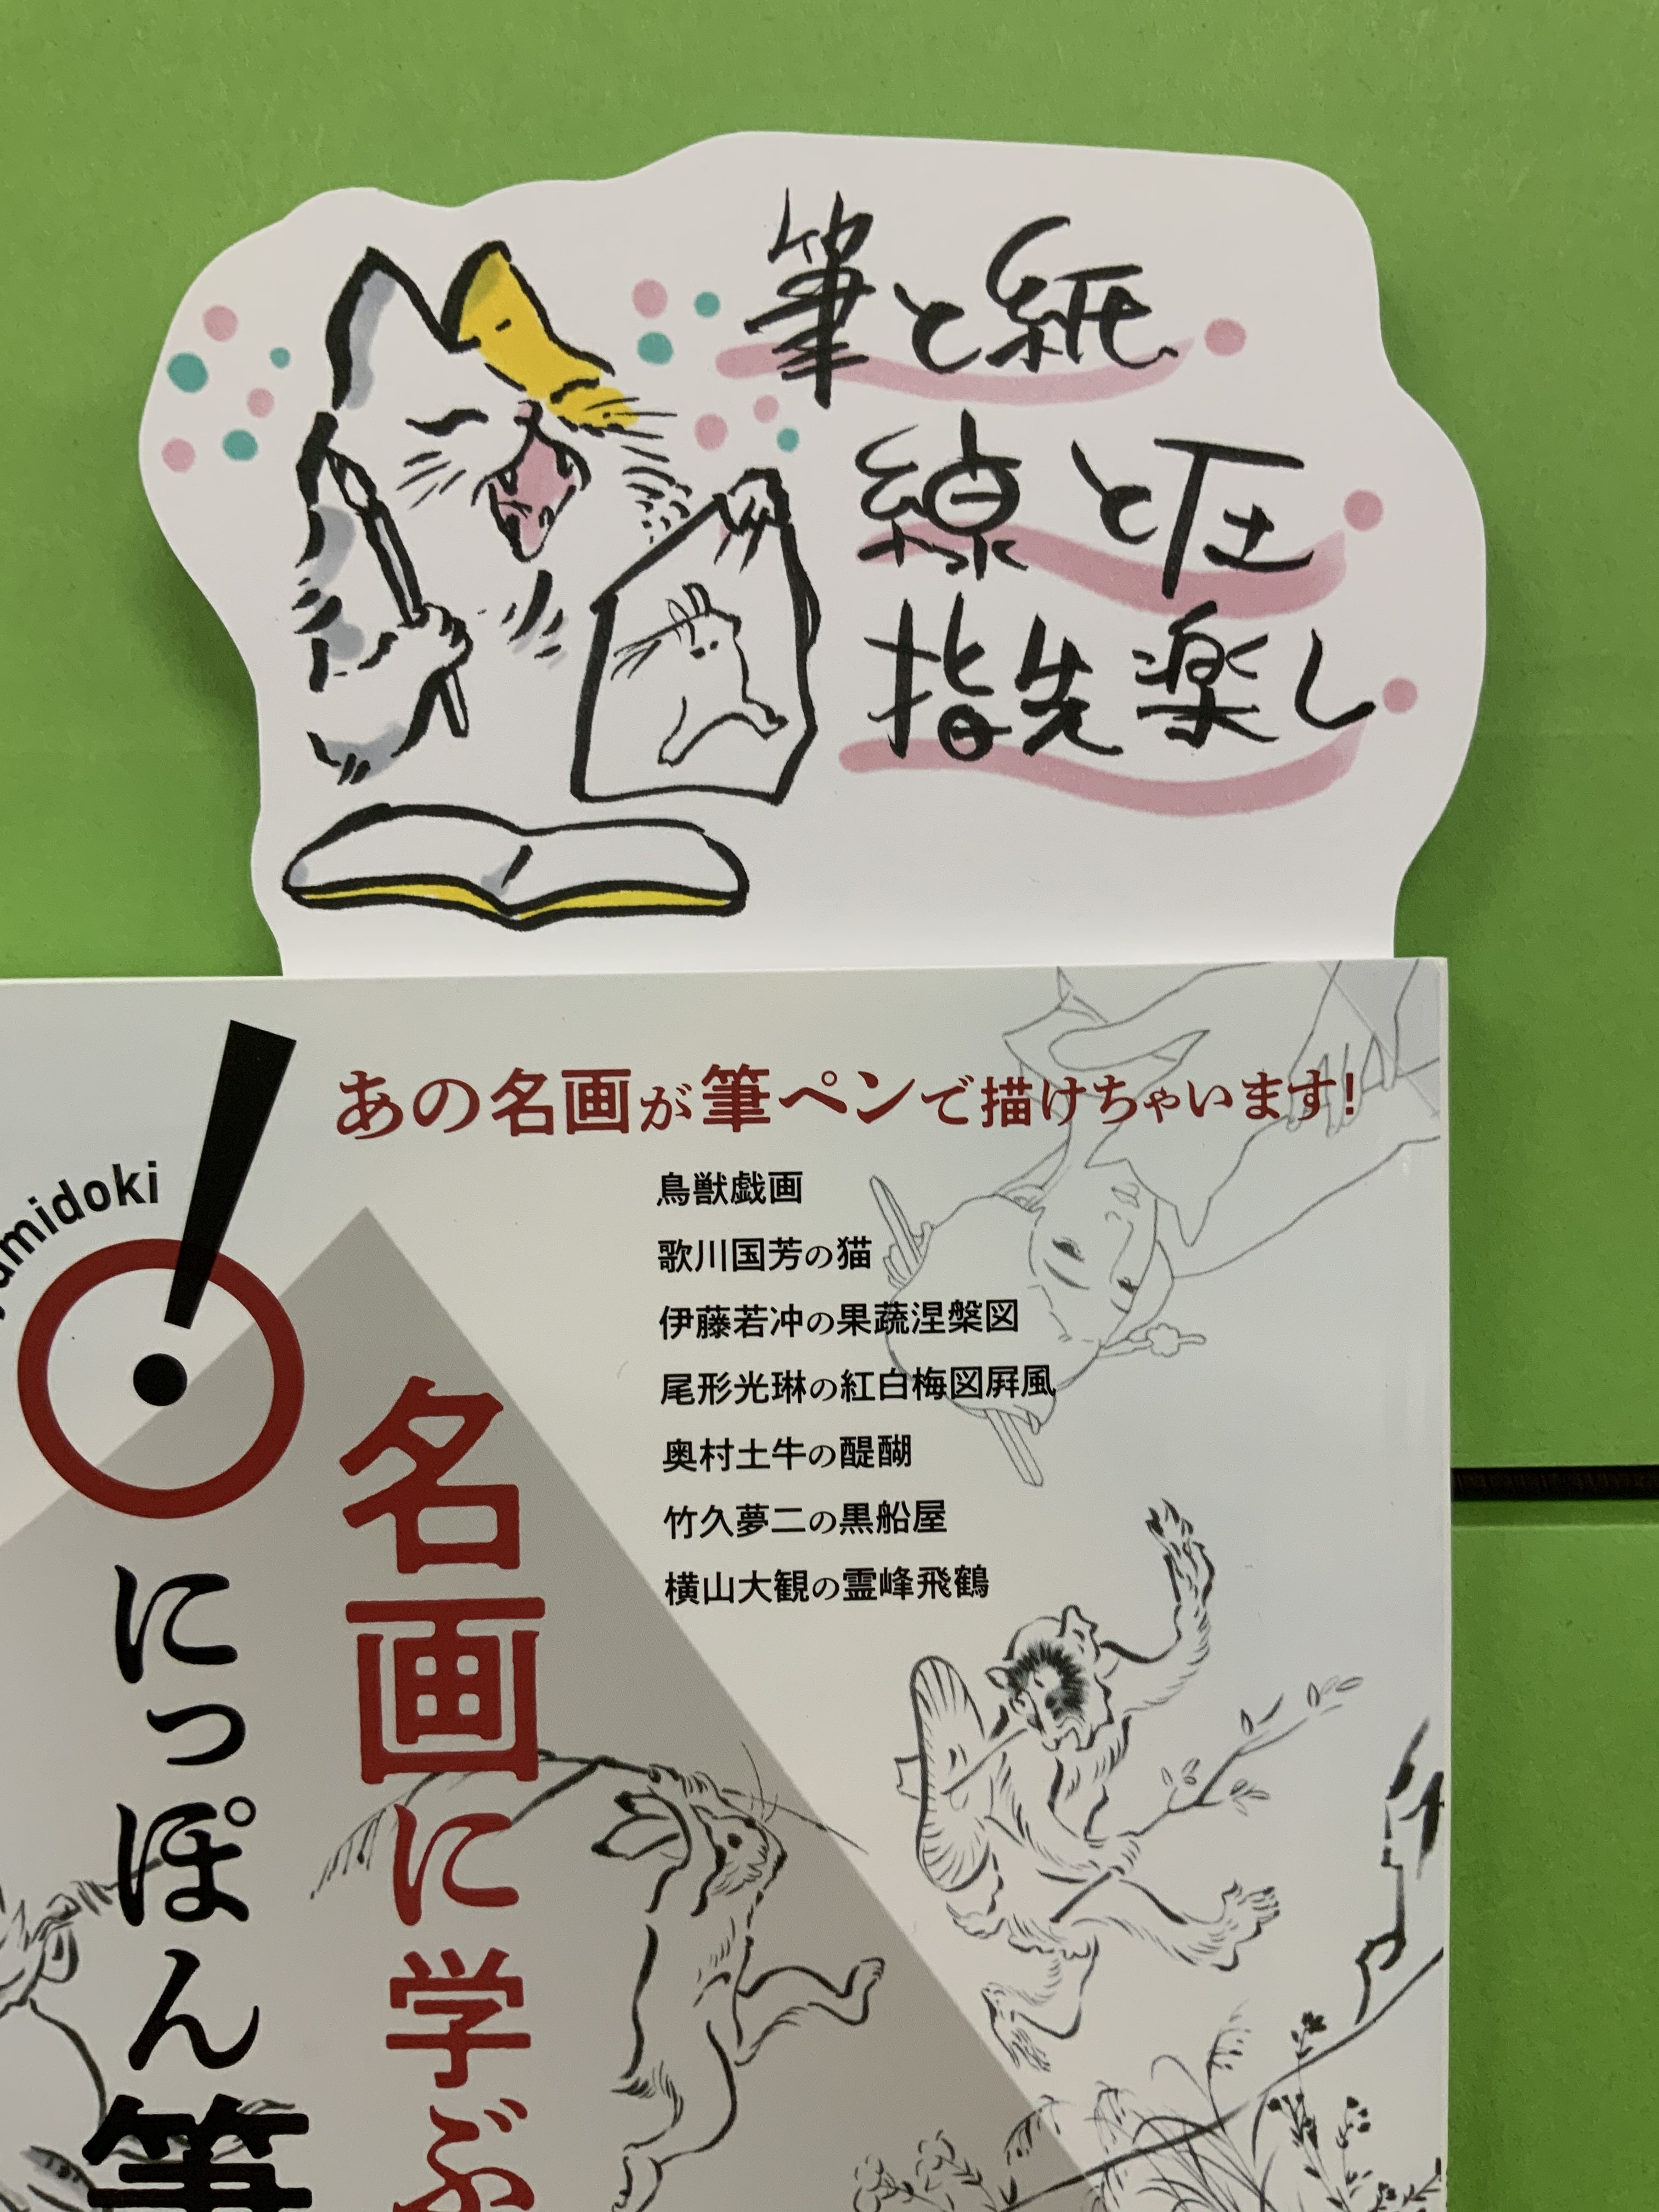 筆と紙
線と圧
指先楽し
あの名画が筆ペンで描けちゃいます!
鳥獣戯画
歌川国芳の猫
伊藤若冲の果蔬涅槃図
尾形光琳の紅白梅図屏風
奥村土牛の醍醐
竹久夢二の黒船屋
横山大観の霊峰飛鶴
amidoki
名画に学ぶ
にっぽん筆